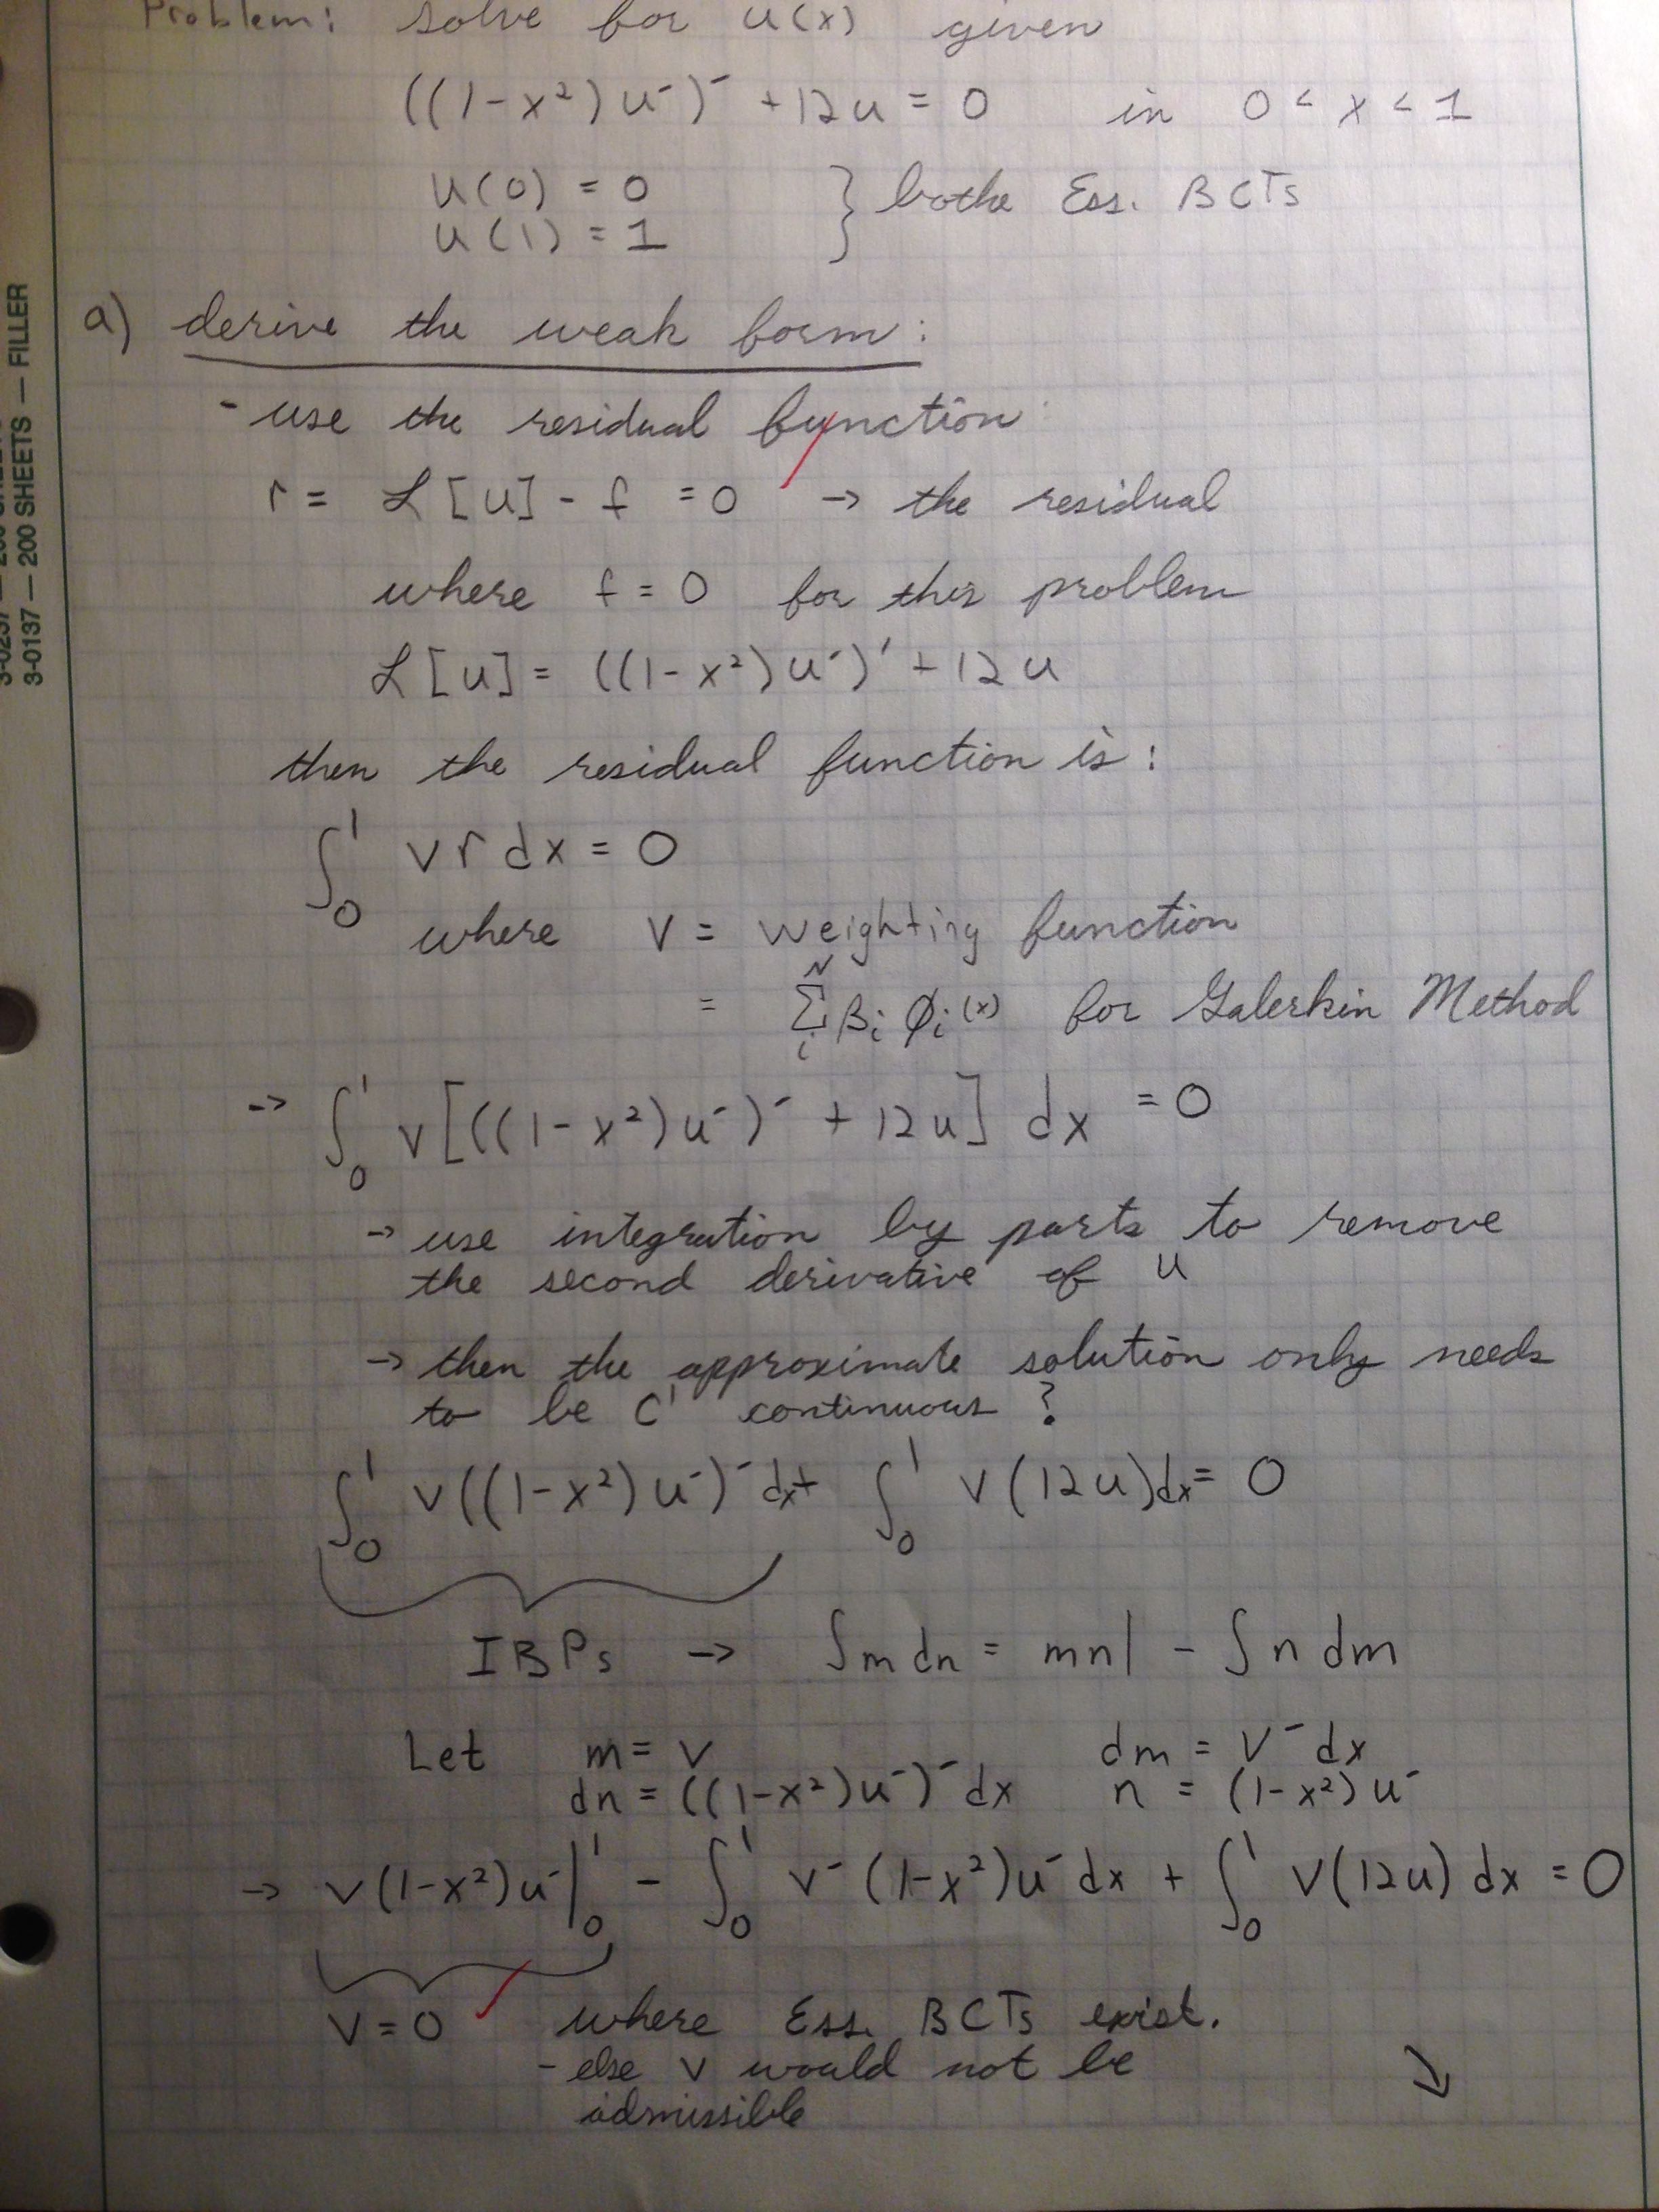 Problem: solve for u(x) given
((1-x²)u')' + 12u = 0 in 0 < x < 1
u(0) = 0
u(1) = 1 } bothe Ess. BCTs
a) derive the weak form:
- use the residual function:
r = ℒ[u] - f = 0 → the residual
where f = 0 for this problem
ℒ[u] = ((1-x²)u')' + 12u
then the residual function is:
∫₀¹ v r dx = 0
where v = weighting function
= Σᵢᴺ βᵢ φᵢ(x) for Galerkin Method
→ ∫₀¹ v[((1-x²)u')' + 12u] dx = 0
→ use integration by parts to remove
the second derivative of u
→ then the approximate solution only needs
to be C¹ continuous ?
∫₀¹ v((1-x²)u')' dx + ∫₀¹ v(12u)dx = 0
IBPs → ∫m dn = mn| - ∫n dm
Let m = v dm = v' dx
dn = ((1-x²)u')' dx n = (1-x²)u'
→ v(1-x²)u'|₀¹ - ∫₀¹ v'(1-x²)u' dx + ∫₀¹ v(12u) dx = 0
v = 0 where Ess. BCTs exist.
- else v would not be
admissible
3-0137 — 200 SHEETS — FILLER